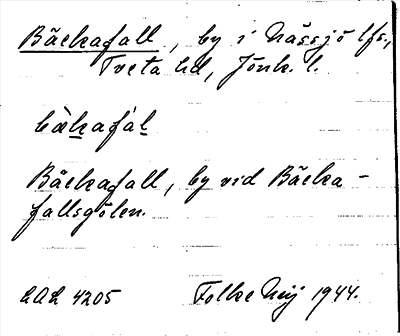 Bäckafall, by i Nässjö lfs,
Tveta hd, Jönk. l.
bàkafál
Bäckafall, by vid Bäcka-
fallsgölen.
4205
Folke 1944.